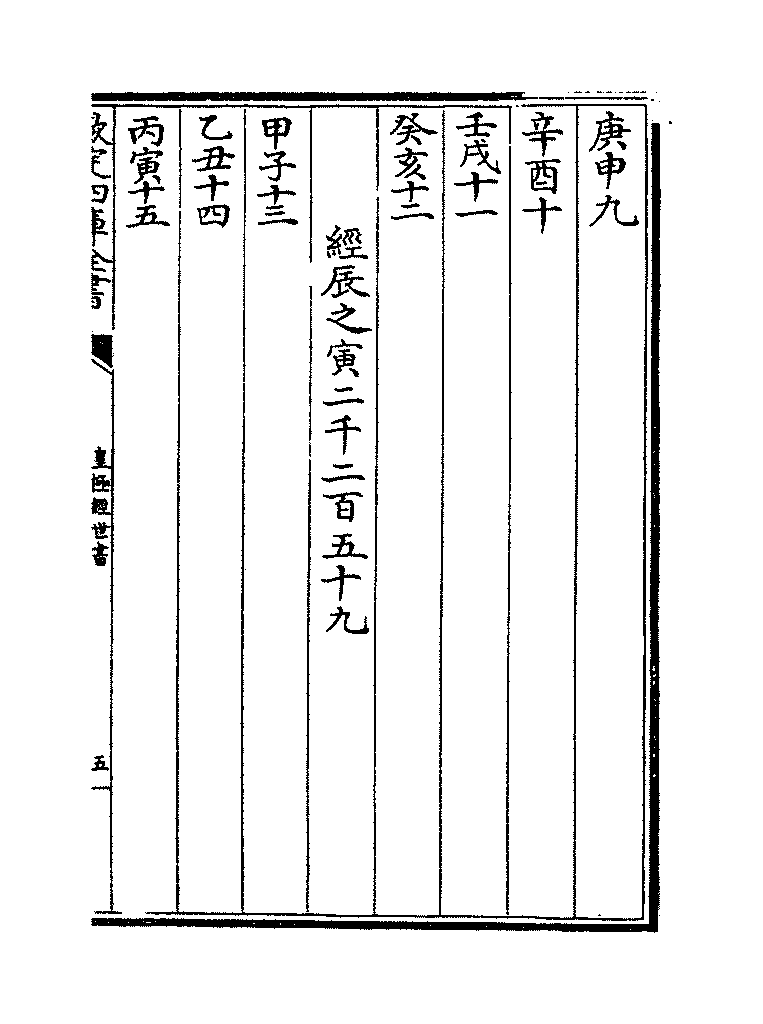 庚申九
辛酉十
壬戌十一
癸亥十二
經辰之寅二千二百五十九
甲子十三
乙丑十四
丙寅十五
欽定四庫全書
皇極經世書
五一